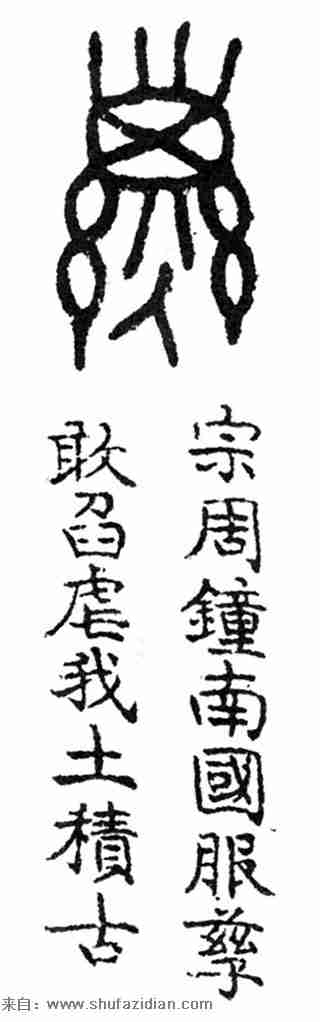 宗周鐘南國服孳
敢臽虐我土積古
来自：www.shufazidian.com